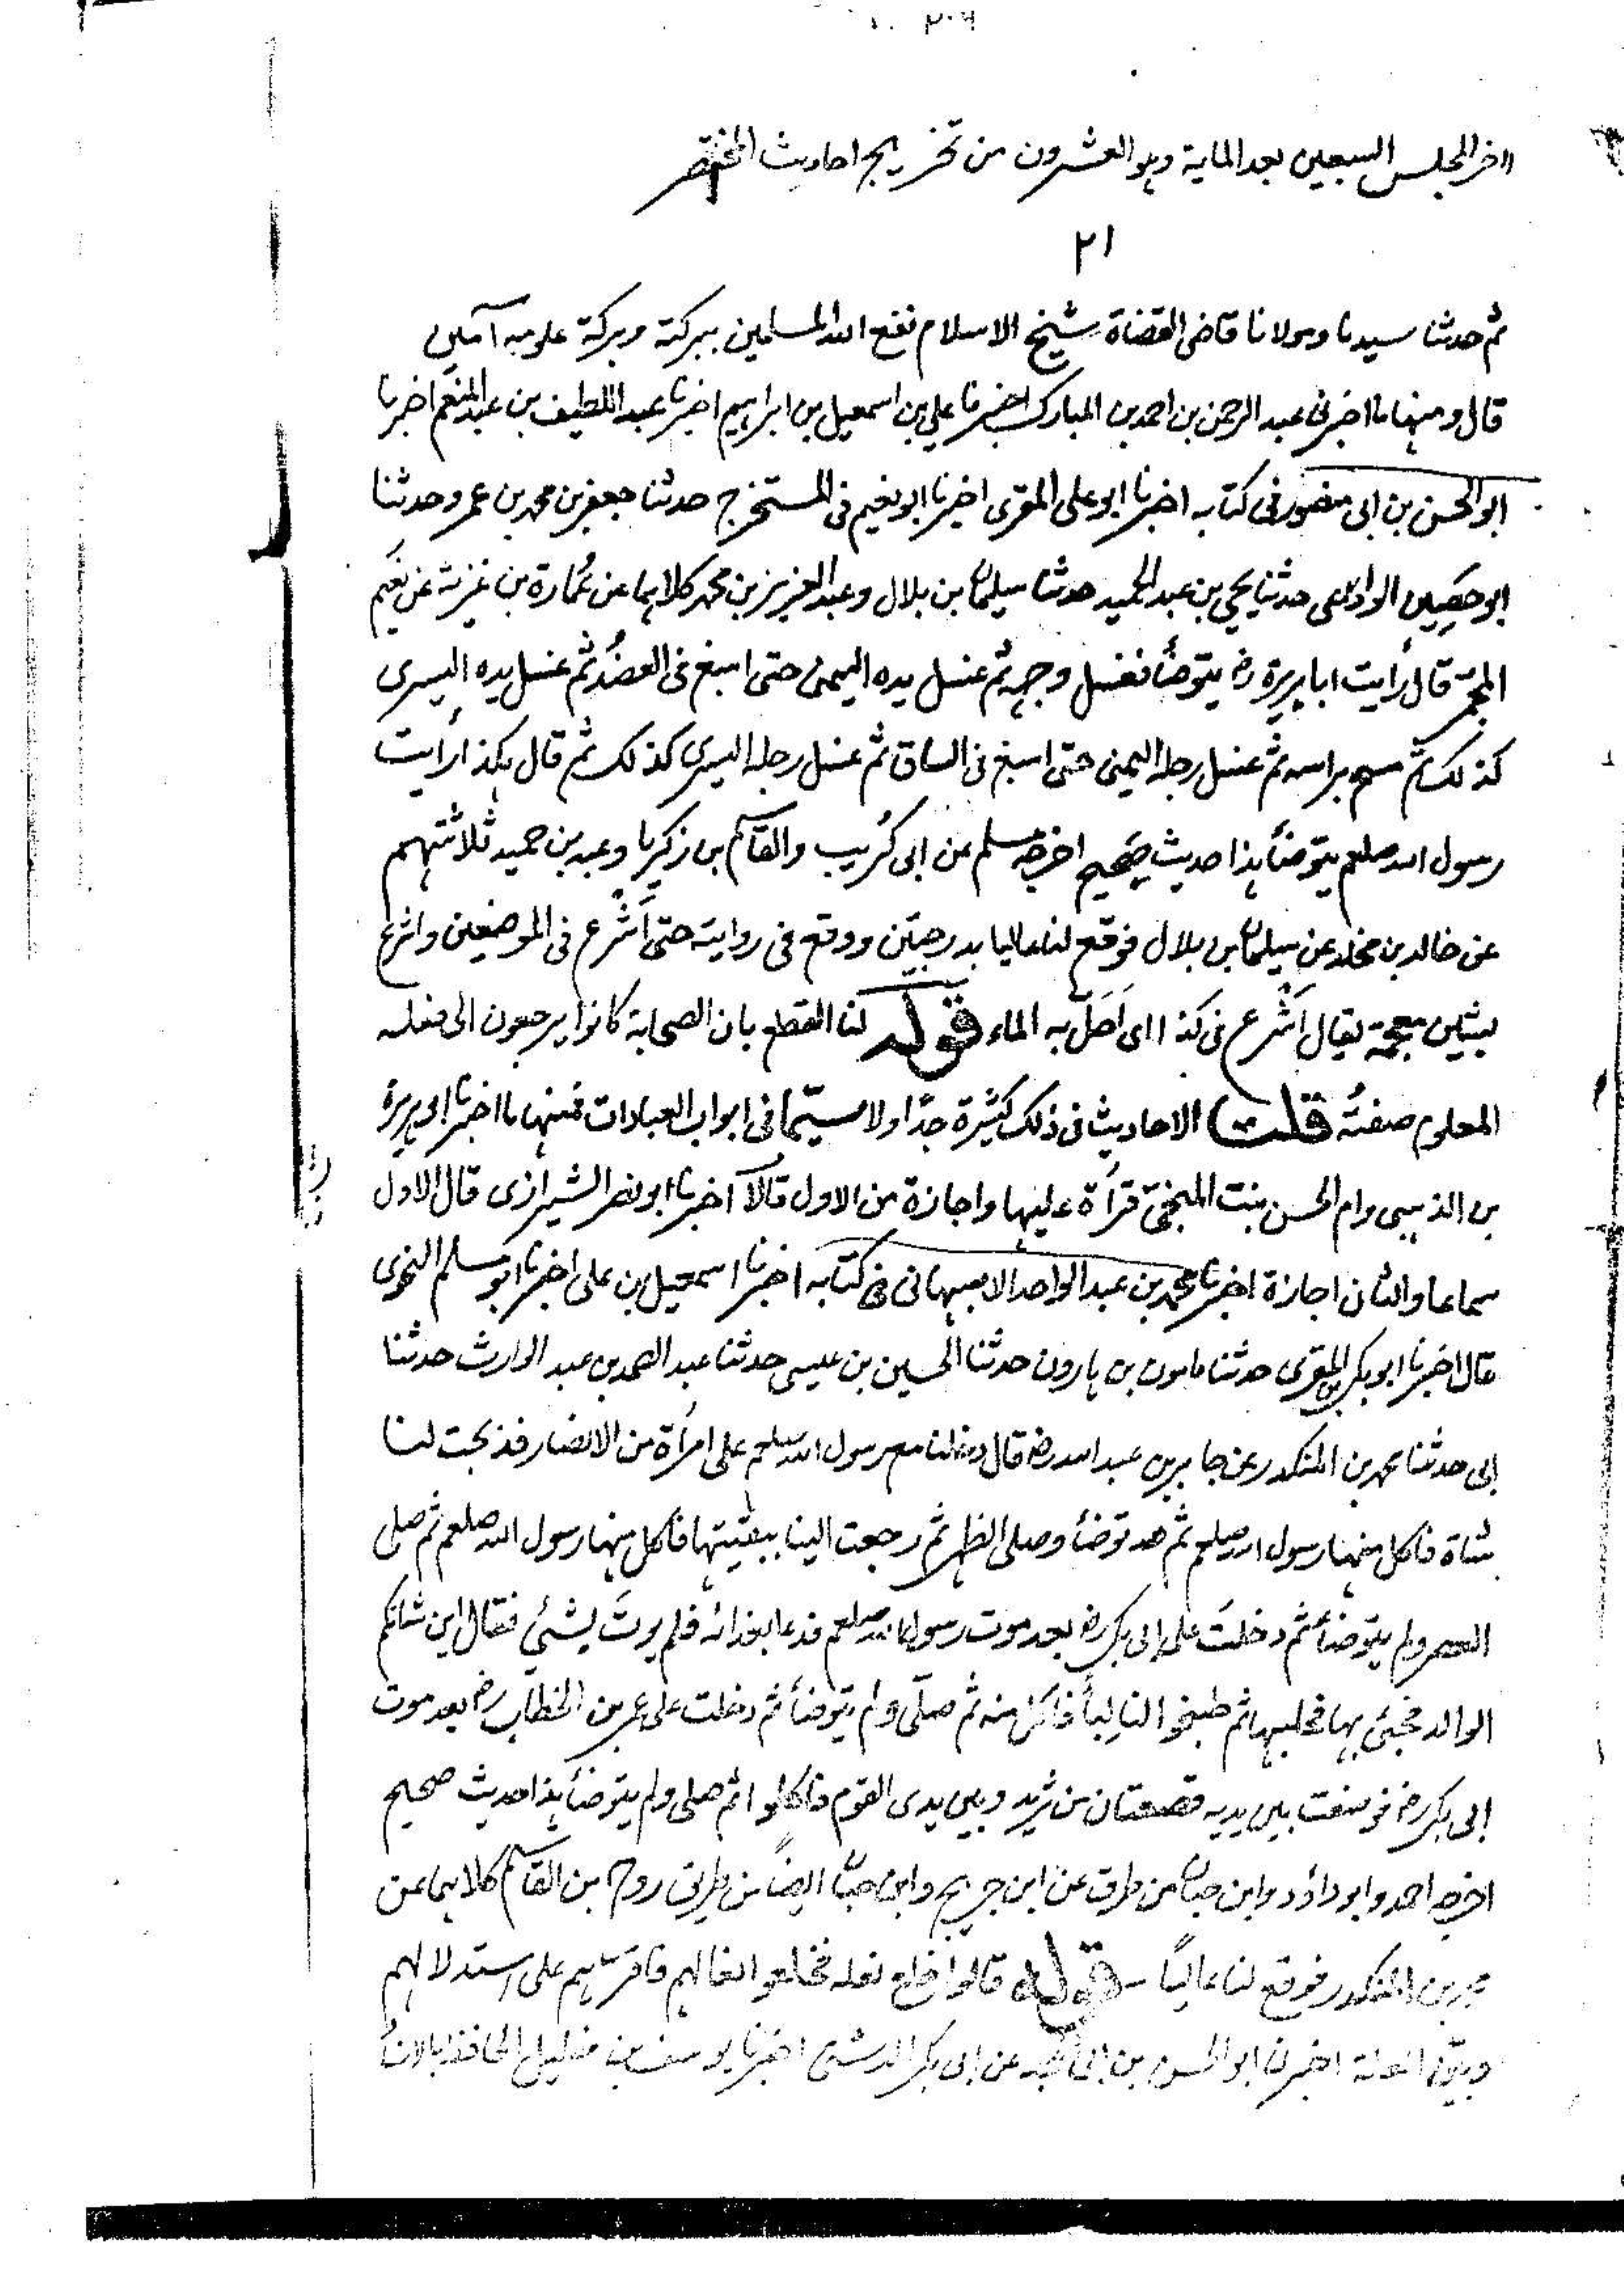 ٢٠٩
آخر المجلس السبعين بعد الماية وهو العشرون من تخريج احاديث المختصر
٢١
ثم حدثنا سيدنا ومولانا قاضى القضاة شيخ الاسلام نفع الله المسلمين ببركته وبركة علومه آمين
قال ومنها ما اخبرنى عبد الرحمن بن احمد بن المبارك اخبرنا علي بن اسمعيل بن ابراهيم اخبرنا عبد اللطيف بن عبد المنعم اخبرنا
ابو الحسن بن ابى منصور فى كتابه اخبرنا ابو على المقرى اخبرنا ابو نعيم فى المستخرج حدثنا جعفر بن محمد بن عمرو حدثنا
ابو حصين الوادعى حدثنا يحيى بن عبد الحميد حدثنا سليمان بن بلال وعبد العزيز بن محمد كلاهما عن عُمارة بن غزية عن نعيم
المجمر قال رأيت ابا هريرة رض يتوضأ فغسل وجهه ثم غسل يده اليمنى حتى اسبغ فى العضد ثم غسل يده اليسرى
كذلك ثم مسح براسه ثم غسل رجله اليمنى حتى اسبغ فى الساق ثم غسل رجله اليسرى كذلك ثم قال هكذا رأيت
رسول الله صلعم يتوضأ هذا حديث صحيح اخرجه مسلم عن ابى كُريب والقاسم بن زكريا وعبد بن حميد ثلاثتهم
عن خالد بن مخلد عن سليمان بن بلال فوقع لنا عاليا بدرجتين ووقع فى روايته حتى أشرع فى الموضعين واشرع
بشين معجمة يقال أشرع فى كذا اى اَحَلّ به الماء قوله لنا القطع بان الصحابة كانوا يرجعون الى فعله
المعلوم صفتُه قلت الاحاديث فى ذلك كثيرة جدًا ولا سيّما فى ابواب العبادات فمنها ما اخبرنا ابو هريرة
بن الذهبى وام الحسن بنت المنجى قرأة عليها واجازة من الاول قالا اخبرنا ابو نصر الشيرازى قال الاول
سماعا والثانى اجازة اخبرنا محمد بن عبد الواحد الاصبهانى فى كتابه اخبرنا اسمعيل بن على اخبرنا ابو مسلم النحوى
قال اخبرنا ابو بكر بن المقرى حدثنا مامون بن هارون حدثنا الحسين بن عيسى حدثنا عبد الصمد بن عبد الوارث حدثنا
ابى حدثنا محمد بن المنكدر عن جابر بن عبد الله رض قال دخلنا مع رسول الله صلعم على امرأة من الانصار فذبحت لنا
شاة فاكل منها رسول الله صلعم ثم توضأ وصلى الظهر ثم رجعت الينا ببقيتها فاكل منها رسول الله صلعم ثم صلى
العصر ولم يتوضأ ثم دخلت على ابى بكر رض بعد موت رسول الله صلعم فدعا بغدائه فلم يوت بشئي فقال اين شاتكم
الوالد فجئى بها فحلبها ثم طبخوا لنا لِبأً فاكل منه ثم صلّى ولم يتوضأ ثم دخلت على عمر بن الخطاب رض بعد موت
ابى بكر رض فوضعت بين يديه قصعتان من ثريد وبين يدى القوم فاكلوا ثم صلى ولم يتوضأ هذا حديث صحيح
اخرجه احمد وابو داؤد وابن حبان من طرق عن ابن جريج وابن حبان ايضًا من طريق روح بن القاسم كلاهما عن
محمد بن المنكدر فوقع لنا عاليًا قوله قالوا خلع نعله فخلعوا نعالهم فاقرّهم على استدلالهم
وبيّن العلة اخبرنا ابو الحسن بن ابى عن ابى بكر الدشتى اخبرنا يوسف بن خليل الحافظ